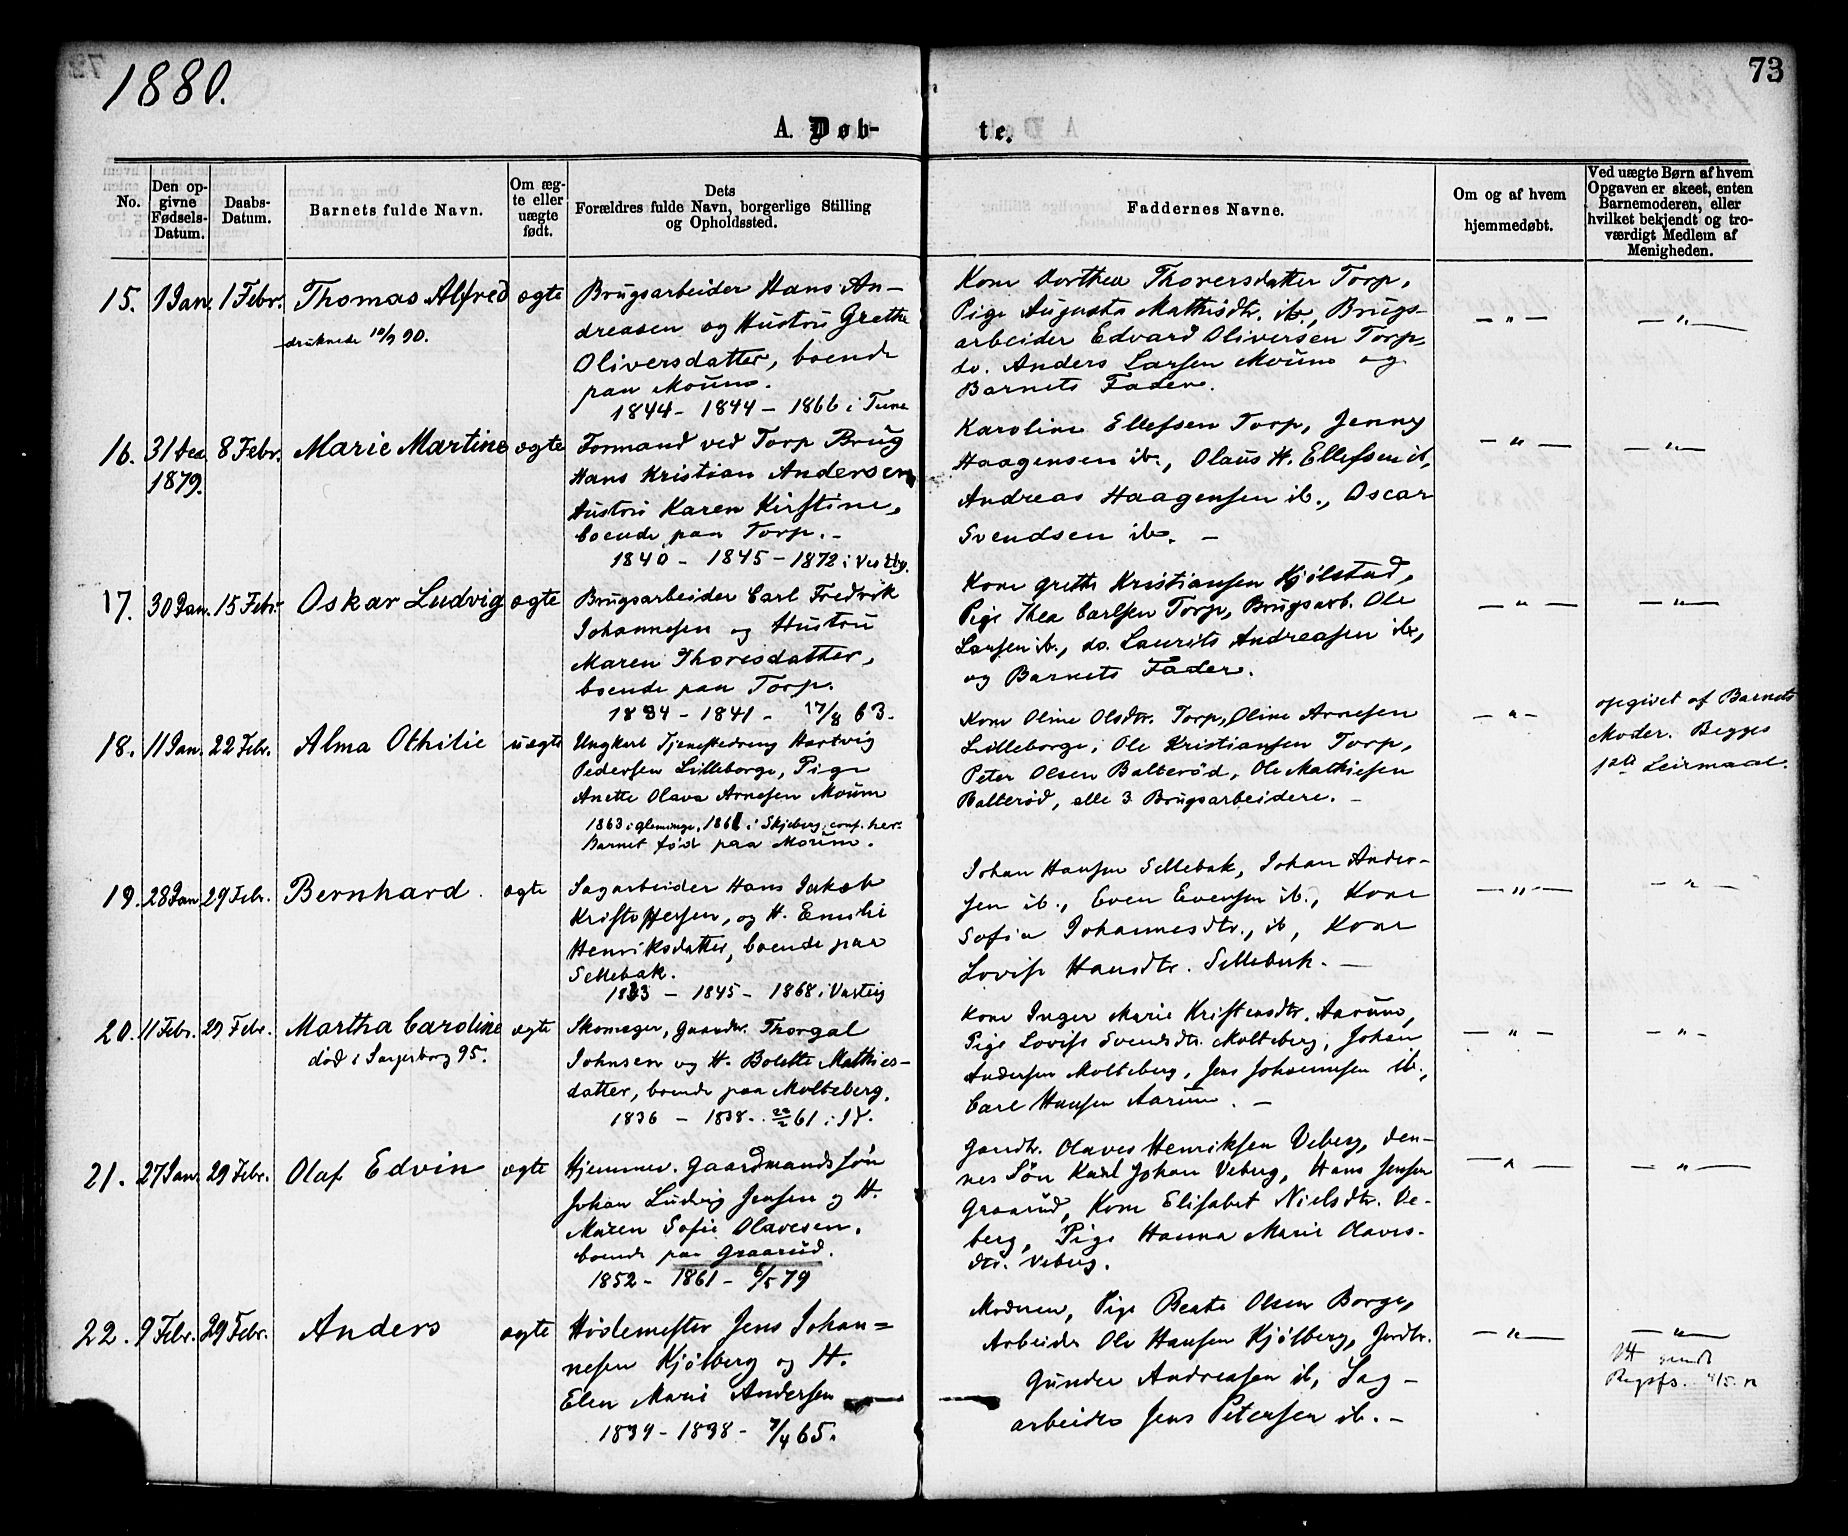 1880.
73
A. Døb-
te.
No.
Den op-
givne
Fødsels-
Datum.
Daabs-
Datum.
Barnets fulde Navn.
Om æg-
te eller
uægte
født.
Dets
Forældres fulde Navn, borgerlige Stilling
og Opholdssted.
Faddernes Navne.
Om og af hvem
hjemmedøbt.
Ved uægte Børn af hvem
Opgaven er skeet, enten
Barnemoderen, eller
hvilket bekjendt og tro-
værdigt Medlem af
Menigheden.
15. 1 Jan. 1 Febr. Thomas Alfred ægte
druknede 10/9 90.
Brugsarbeider Hans An-
dreasen og Hustru Grethe
Oliversdatter, boende
paa Moum.
1844 - 1844 - 1866 i Tune
Kone Dorthea Thoresdatter Torp,
Pige Augusta Mathisdtr. ib., Brugs-
arbeider Edvard Oliversen Torp,
do. Anders Larsen Moum og
Barnets Fader.
— " —
— " —
16. 31 Dec. 8 Febr. Marie Martine ægte
1879.
Formand ved Torp Brug
Hans Kristian Andersen
Hustru Karen Kirstine,
boende paa Torp. -
1840 - 1845 - 1872 i Vestby.
Karoline Ellefsen Torp, Jenny
Haagensen ib., Olaus H. Ellefsen ib,
Andreas Haagensen ib., Oscar
Svendsen ib. —
— " —
— " —
17. 30 Jan. 15 Febr. Oskar Ludvig ægte
Brugsarbeider Carl Fredrik
Johannesen og Hustru
Maren Thoresdatter,
boende paa Torp.
1834 - 1841 - 17/8 63.
Kone Grethe Kristiansen Kjølstad,
Pige Thea Carlsen Torp, Brugsarb. Ole
Larsen ib., do. Laurits Andreasen ib,
og Barnets Fader.
— " —
— " —
18. 11 Jan. 22 Febr. Alma Othilie uægte
Ungkarl Tjenestedreng Hartvig
Pedersen Lilleborge, Pige
Anette Olava Arnesen Moum
1863 i Glemminge, 1861 i Skjeberg, conf. her.
Barnet født paa Moum.
Kone Oline Olsdtr. Torp, Oline Arnesen
Lilleborge, Ole Kristiansen Torp,
Peter Olsen Balterød, Ole Mathisen
Balterød, alle 3 Brugsarbeidere. —
— " —
opgivet af Barnets
Moder. Begges
1ste Leirmaal.
19. 28 Jan. 29 Febr. Bernhard. ægte
Sagarbeider Hans Jakob
Kristoffersen, og H. Emilie
Henriksdatter, boende paa
Sellebak.
1833 - 1845 - 1868 i Varteig
Johan Hansen Sellebak, Johan Ander-
sen ib., Even Evensen ib., Kone
Sofie Johannesdtr., ib, Kone
Lovise Hansdtr. Sellebak. —
— " —
— " —
20. 11 Febr. 29 Febr. Martha Caroline ægte
død i Sarpsborg 95.
Skomager, Gaardm. Thorgal
Johnsen og H. Bolette Mathies-
datter, boende paa Molteberg.
1836 - 1838 - 61 i Id.
Kone Inger Marie Kristensdtr. Aarum,
Pige Lovise Svendsdtr. Molteberg, Johan
Andersen Molteberg, Jens Johannesen ib.,
Carl Hansen Aarum. —
— " —
— " —
21. 27 Jan. 29 Febr. Olaf Edvin ægte
Hjemmev. Gaardmandssøn
Johan Ludvig Jensen og H.
Maren Sofie Olavesen,
boende paa Graarud.
1852 - 1861 - 6/5 79
Gaardbr. Olaves Henriksen Veberg, den-
nes Søn Karl Johan Veberg, Hans Jensen
Graarud, Kone Elisabet Nielsdtr. Ve-
berg, Pige Hanna Marie Olaves-
dtr. Veberg.
— " —
— " —
22. 9 Febr. 29 Febr. Anders ægte
Høvlemester Jens Johan-
nesen Kjølberg og H.
Elen Marie Andersen
1839 - 1838 - 7/4 65.
Moderen, Pige Beate Olsen Borge,
Arbeider Ole Hansen Kjølberg, Jordbr.
Gunder Andreasen ib, Sag-
arbeider Jens Petersen ib. —
— " —
— " —